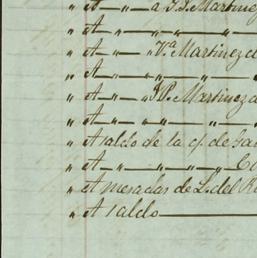 " A — " — a J. J. Martinez
" A — " — " — "
" A — " — " Va. Martinez d
" A — " — " — "
" A — " — " J. P. Martinez d
" A — " — " — "
" A saldo de la c/. de
" A — " — " — "
" A mesadas de L. del
" A saldo —